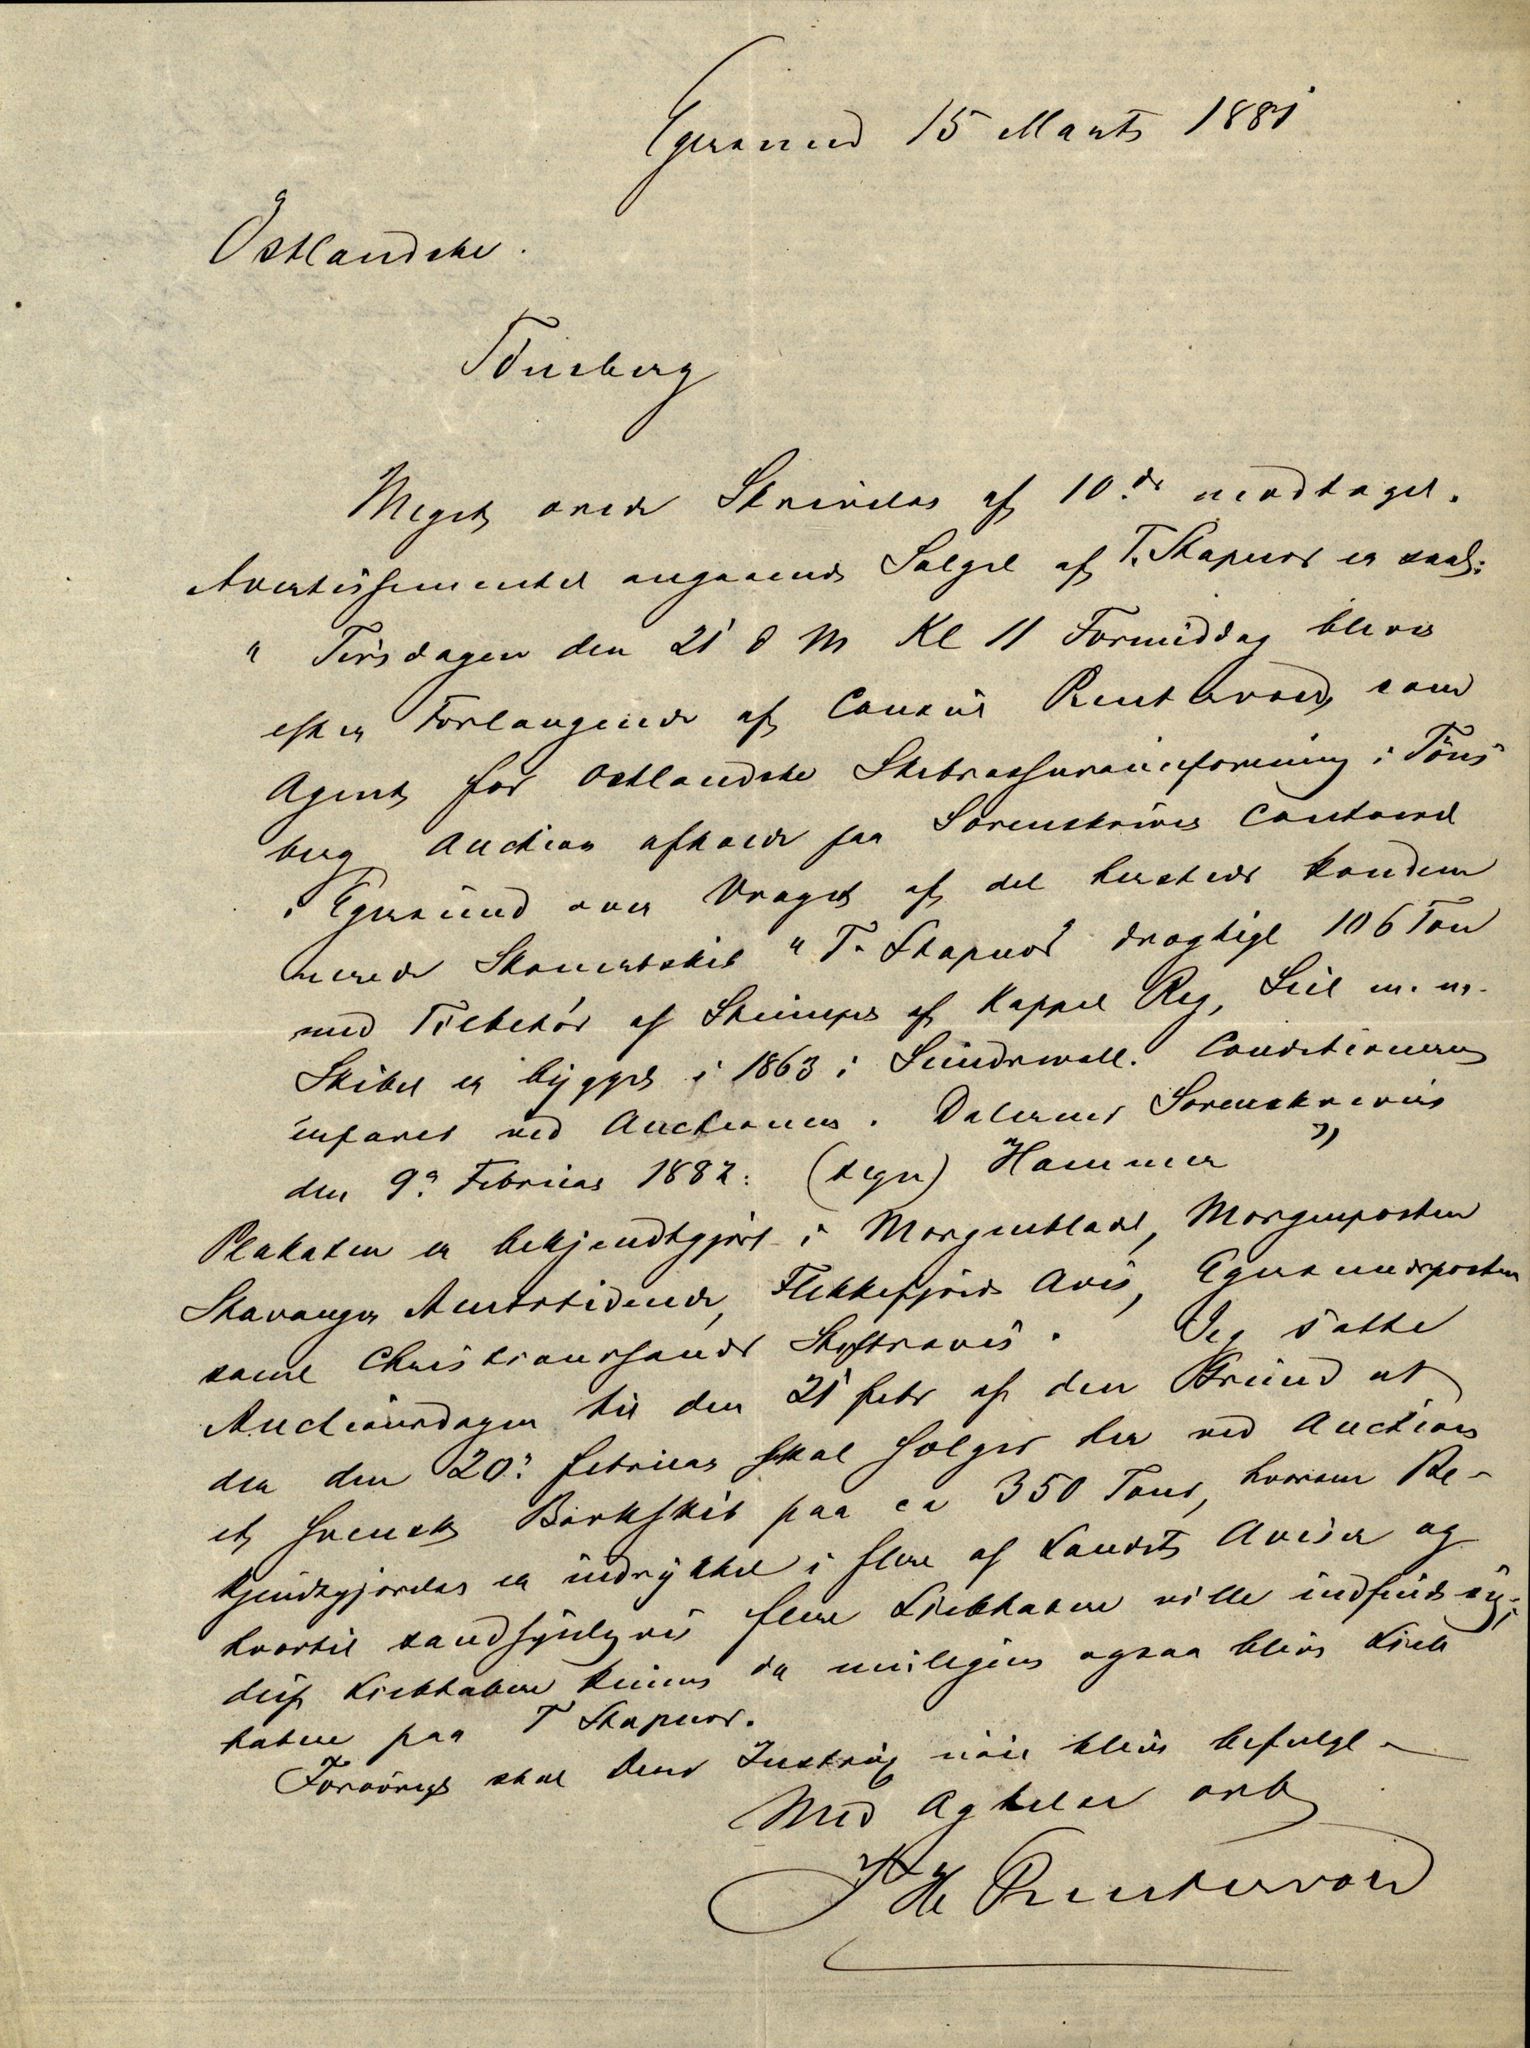 Egersund 15 Marts 1881
Østlandske.
Tönsberg
Meget ærede Skrivelse af 10.de modtaget.
Avertissementet angaaende Salget af T. Skapnor er saal:
" Tirsdagen den 21 d M Kl 11 Formiddag blever
efter Forlangende af Consul Puntervold, som
Agent for Østlandske Skibsassuranceforening i Töns
berg Auction afholdt paa Sorenskriver Contoiret
i Egersund over Vraget af det hersteds kondem
nerede Skonertskib " T. Skapnor drægtigt 106 Ton
med Tilbehör af Skrimpes af Kappel Rig, Seil m. m.
Skibet er bÿgget i 1863 i Sundswall. Conditionerne
erfares ved Auctionen. Dalernes Sorenskriveri
den 9de Februar 1882: (sign) Hammer "
Plakaten er bekjendtgjort i Morgenbladet, Morgenposten
Stavanger Amtstidende, Flekkefjords Avis, Egersundsposten
samt Christianssands Stiftsavis. Jeg satte
Auctionsdagen til den 21 febr af den Grund at
der den 20de februar skal sælges her ved Auction
et svensk Barkskib paa ca 350 Tons, hvorom Be-
kjendtgjørelse er indrÿkket i flere af Landets Aviser og
hvortil sandsÿnligvis flere Liebhabere ville indfinde sig;
disse Liebhabere kunne da muligens ogsaa blive Lieb
habere paa T Skapnor.
Forøvrigt skal Deres Instrux nöie blive befulgt -
Med Agtelse erb
Puntervold